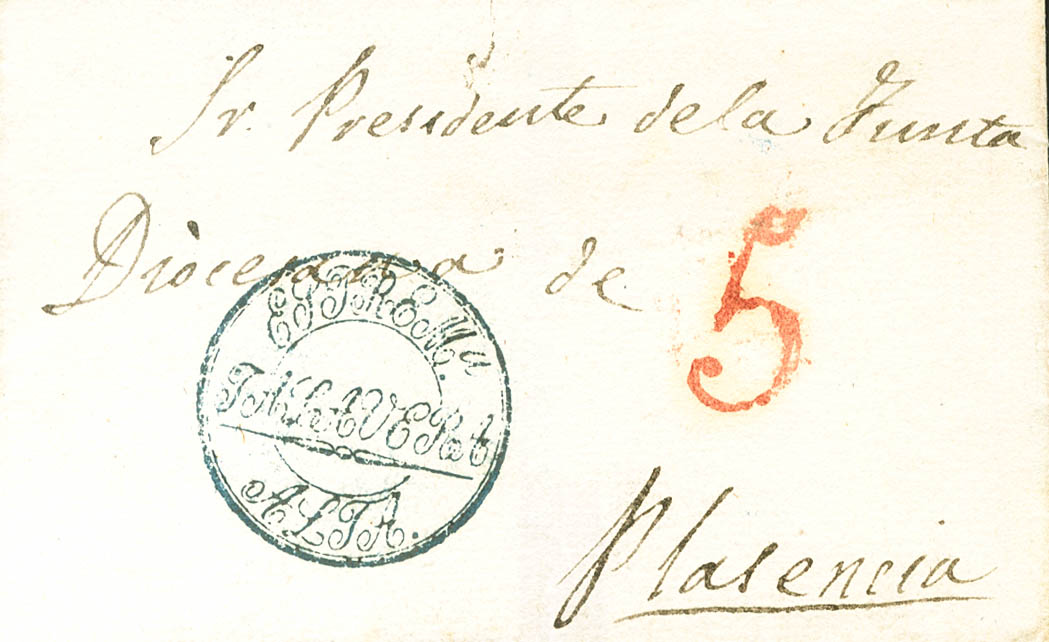 Sr. Presidente dela Junta
Diocesana de
5
ESTREMª.
TALAVERA
ALTA.
Plasencia